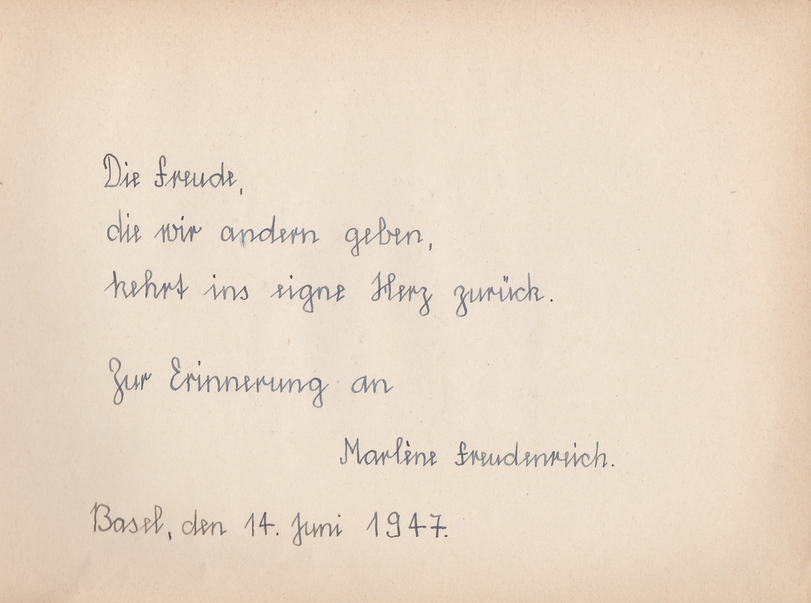 Die Freude,
die wir andern geben,
kehrt ins eigne Herz zurück.
Zur Erinnerung an
Marlène Freudenreich.
Basel, den 14. Juni 1947.